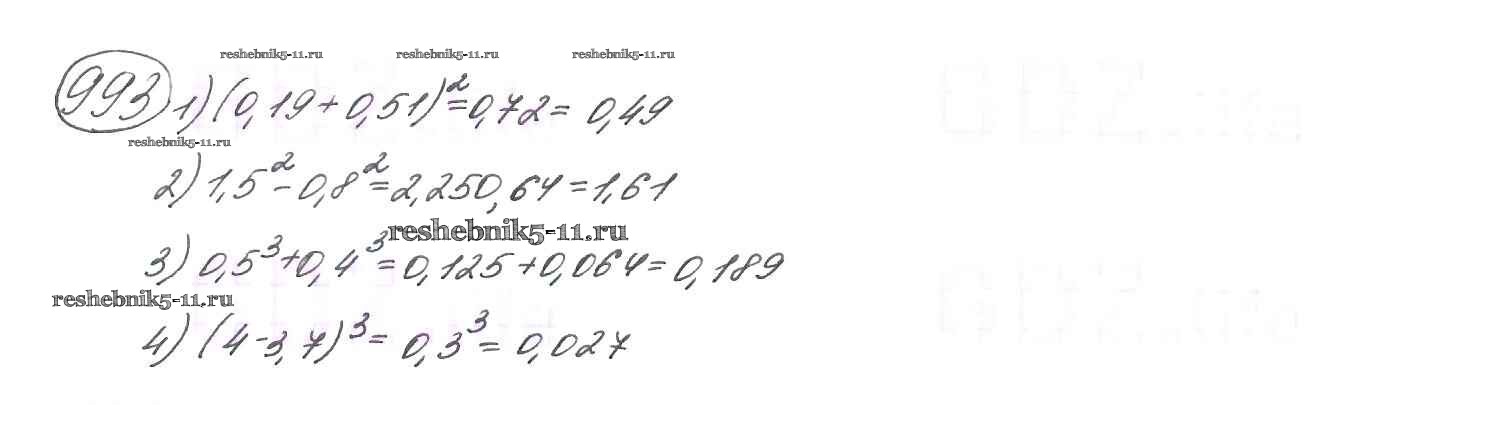 reshebnik5-11.ru reshebnik5-11.ru reshebnik5-11.ru
993 1) (0,19 + 0,51)² = 0,72 = 0,49
reshebnik5-11.ru
2) 1,5² - 0,8² = 2,250,64 = 1,61
reshebnik5-11.ru
3) 0,5³ + 0,4³ = 0,125 + 0,064 = 0,189
reshebnik5-11.ru
4) (4 - 3,7)³ = 0,3³ = 0,027